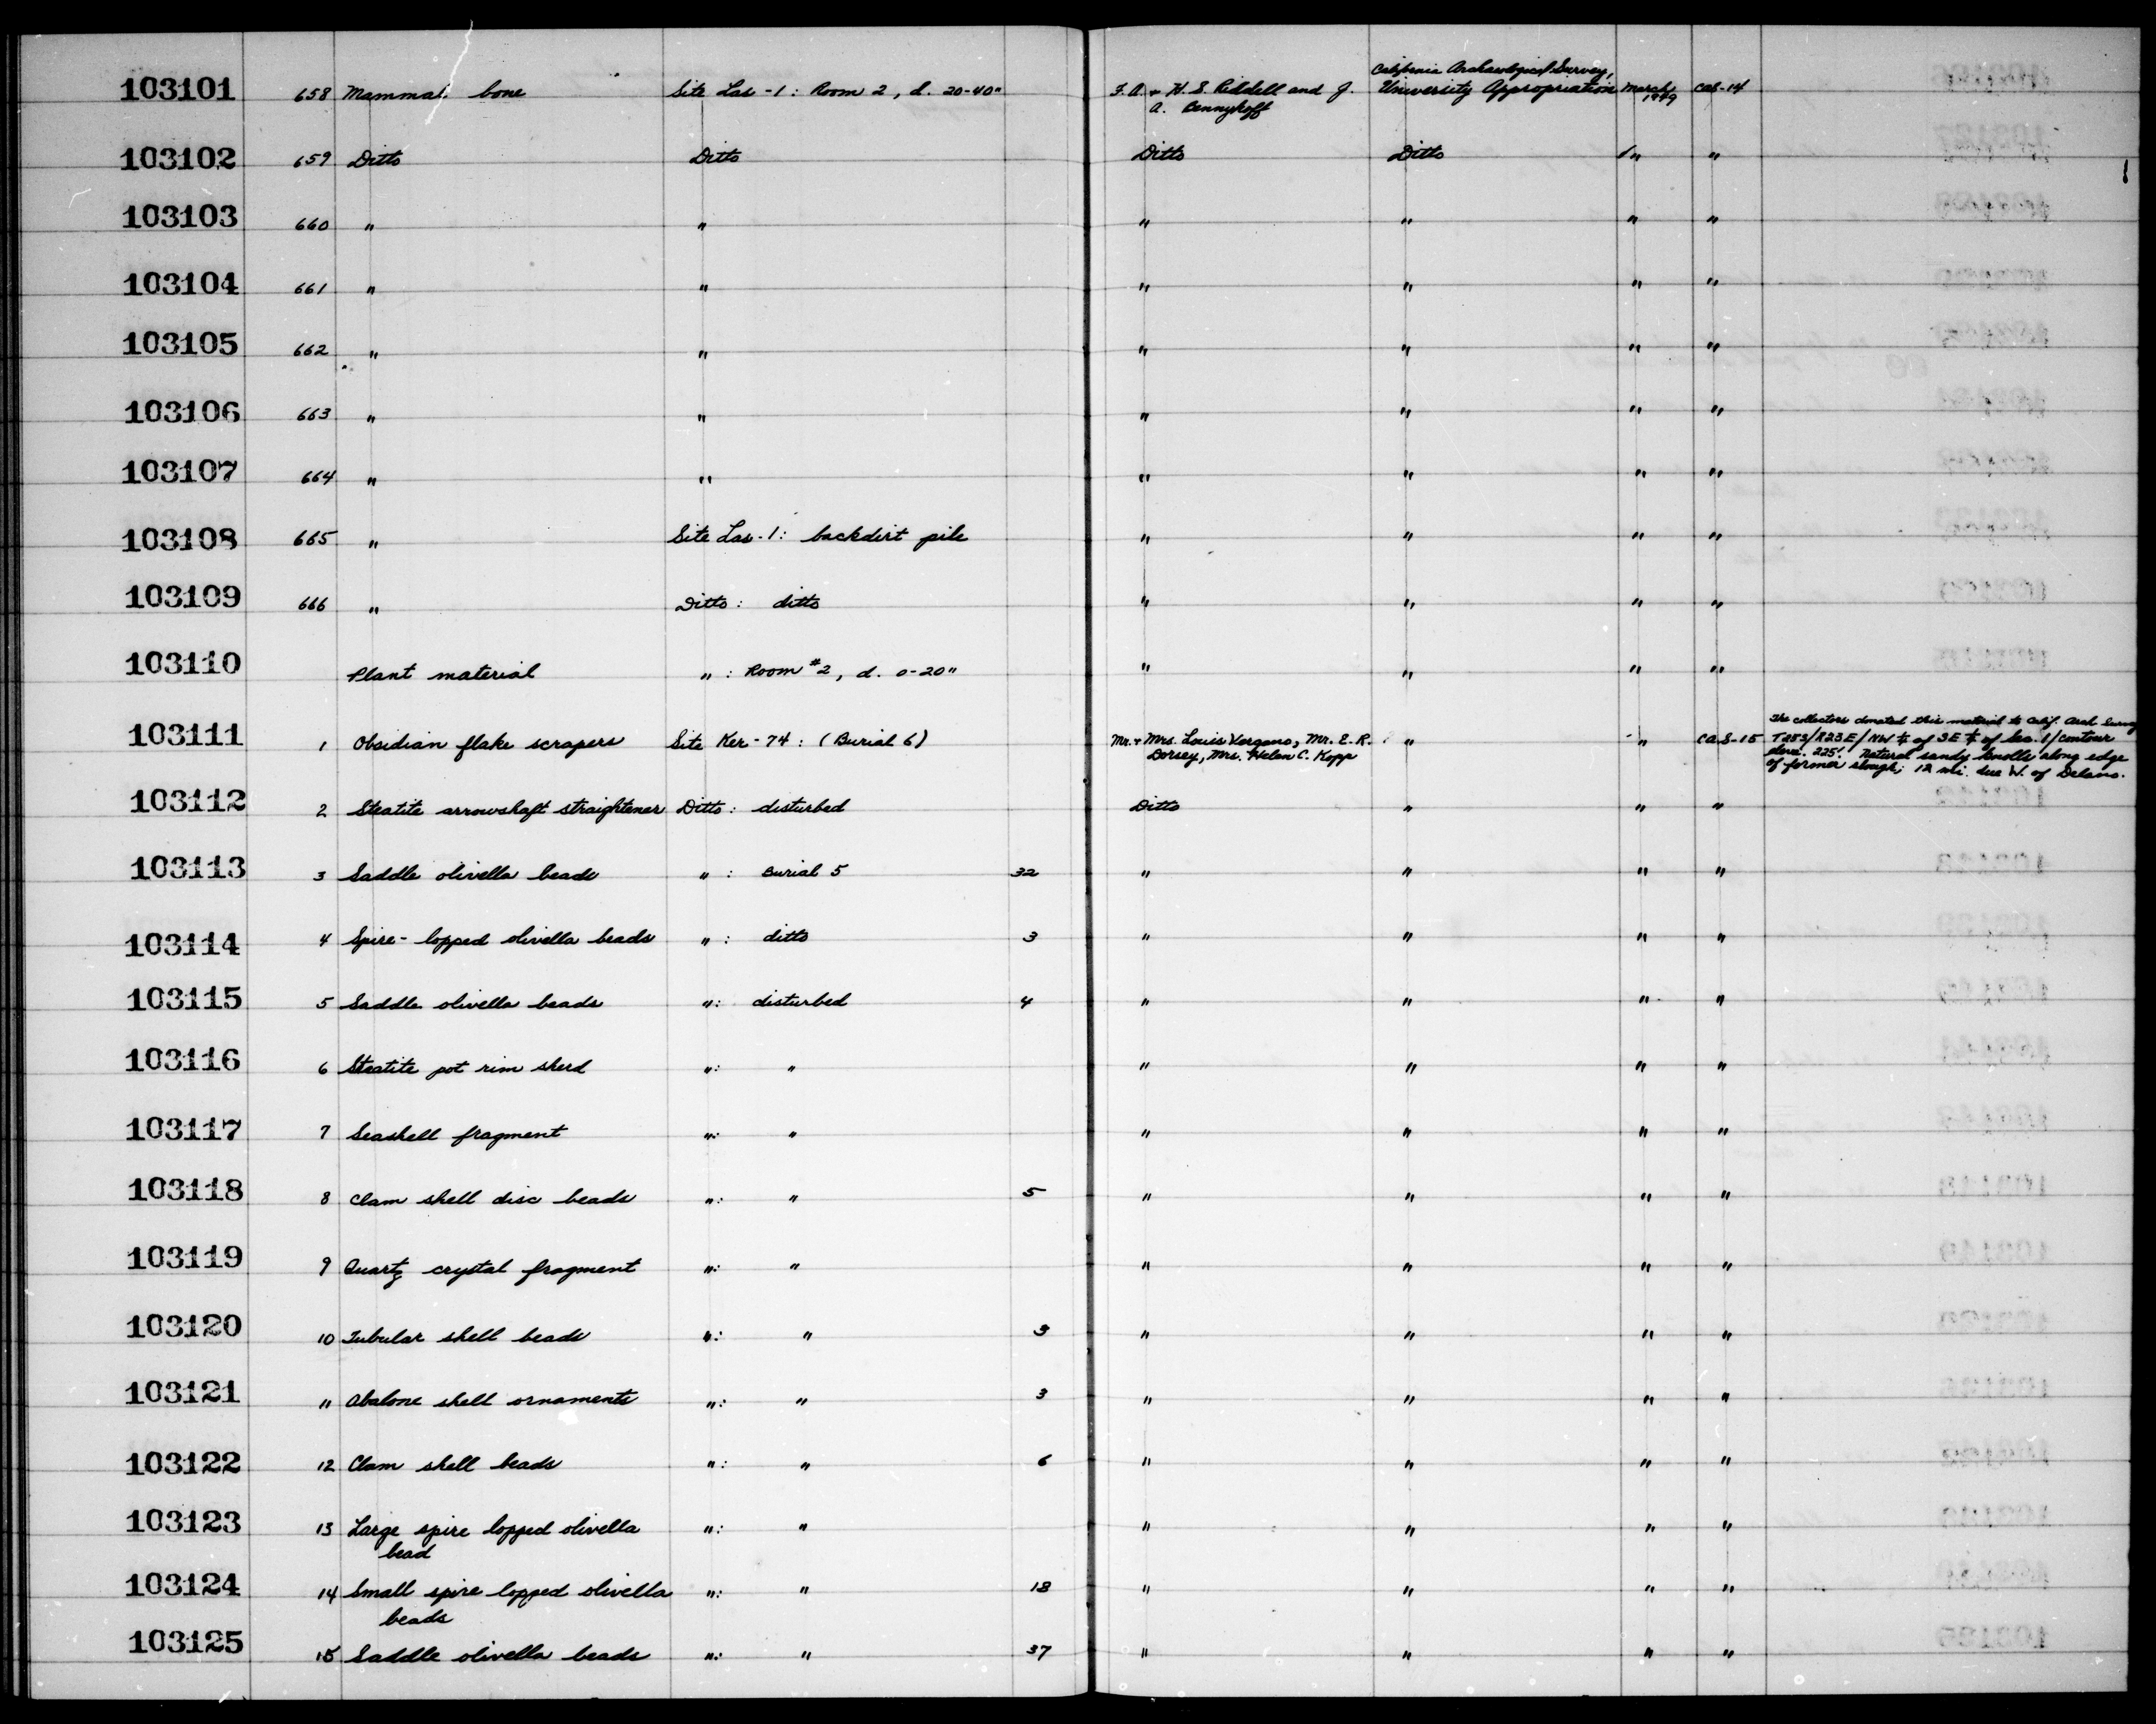 103101 658 Mammal bone Site Las-1: Room 2, d. 20-40" F. A. + H. S. Riddell and J. A. Bennyhoff California Archaeological Survey, University Appropriation March 1949 CAS-14
103102 659 Ditto Ditto Ditto Ditto " "
103103 660 " " " " " "
103104 661 " " " " " "
103105 662 " " " " " "
103106 663 " " " " " "
103107 664 " " " " " "
103108 665 " Site Las-1: backdirt pile " " " "
103109 666 " Ditto: ditto " " " "
103110 Plant material ": Room #2, d. 0-20" " " " "
103111 1 Obsidian flake scrapers Site Ker-74: (Burial 6) Mr. + Mrs. Louis Vergano, Mr. E. R. Dorsey, Mrs. Helen C. Kopp " " CAS-15 The collectors donated this material to Calif. Arch Survey
T25S/R23E/NW ¼ of SE ¼ of Sec. 1/contour
elev. 225'. Natural sandy knolls along edge
of former slough; 12 mi. due W. of Delano.
103112 2 Steatite arrowshaft straightener Ditto: disturbed Ditto " " "
103113 3 Saddle olivella beads ": Burial 5 32 " " " "
103114 4 Spire-lopped olivella beads ": ditto 3 " " " "
103115 5 Saddle olivella beads ": disturbed 4 " " " "
103116 6 Steatite pot rim sherd ": " " " " "
103117 7 Seashell fragment ": " " " " "
103118 8 Clam shell disc beads ": " 5 " " " "
103119 9 Quartz crystal fragment ": " " " " "
103120 10 Tubular shell beads ": " 3 " " " "
103121 11 Abalone shell ornaments ": " 3 " " " "
103122 12 Clam shell beads ": " 6 " " " "
103123 13 Large spire lopped olivella ": " " " " "
bead
103124 14 Small spire lopped olivella ": " 18 " " " "
beads
103125 15 Saddle olivella beads ": " 37 " " " "